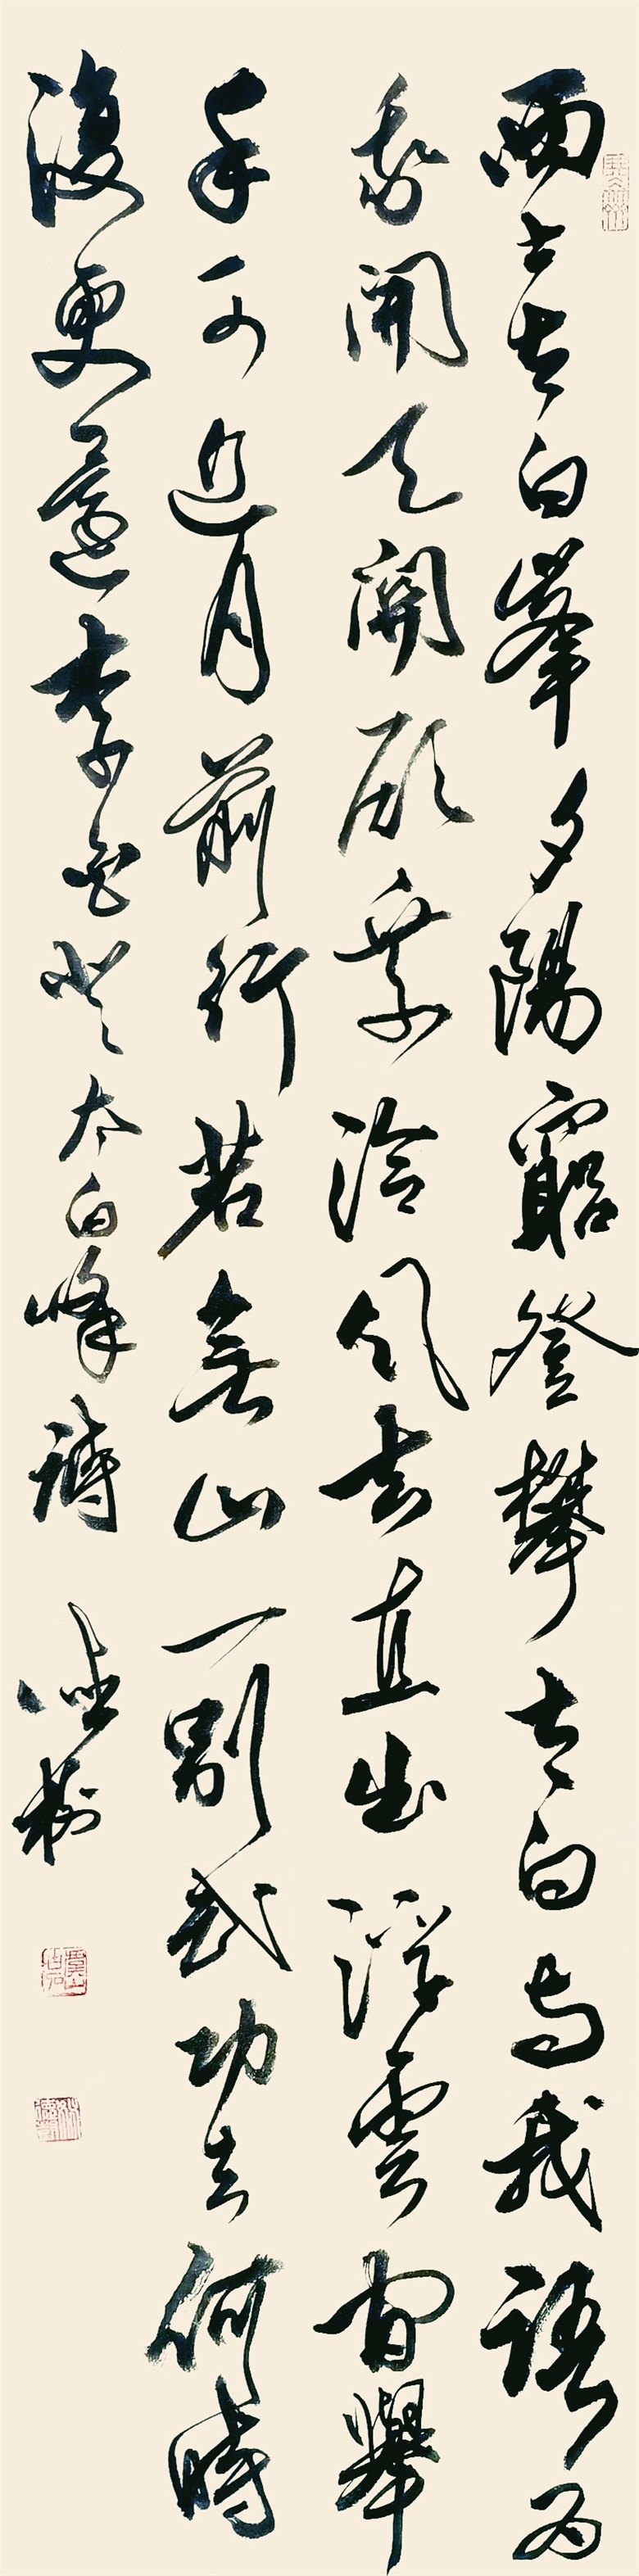 西上太白峯夕陽窮登攀太白与我語为
我開天關願乘泠風去直出浮雲間舉
手可近月前行若無山一別武功去何時
復更還李白登太白峰詩